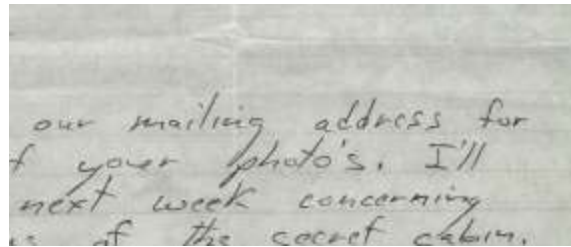 our mailing address for
your photo's. I'll
next week concerning
of the secret cabin.